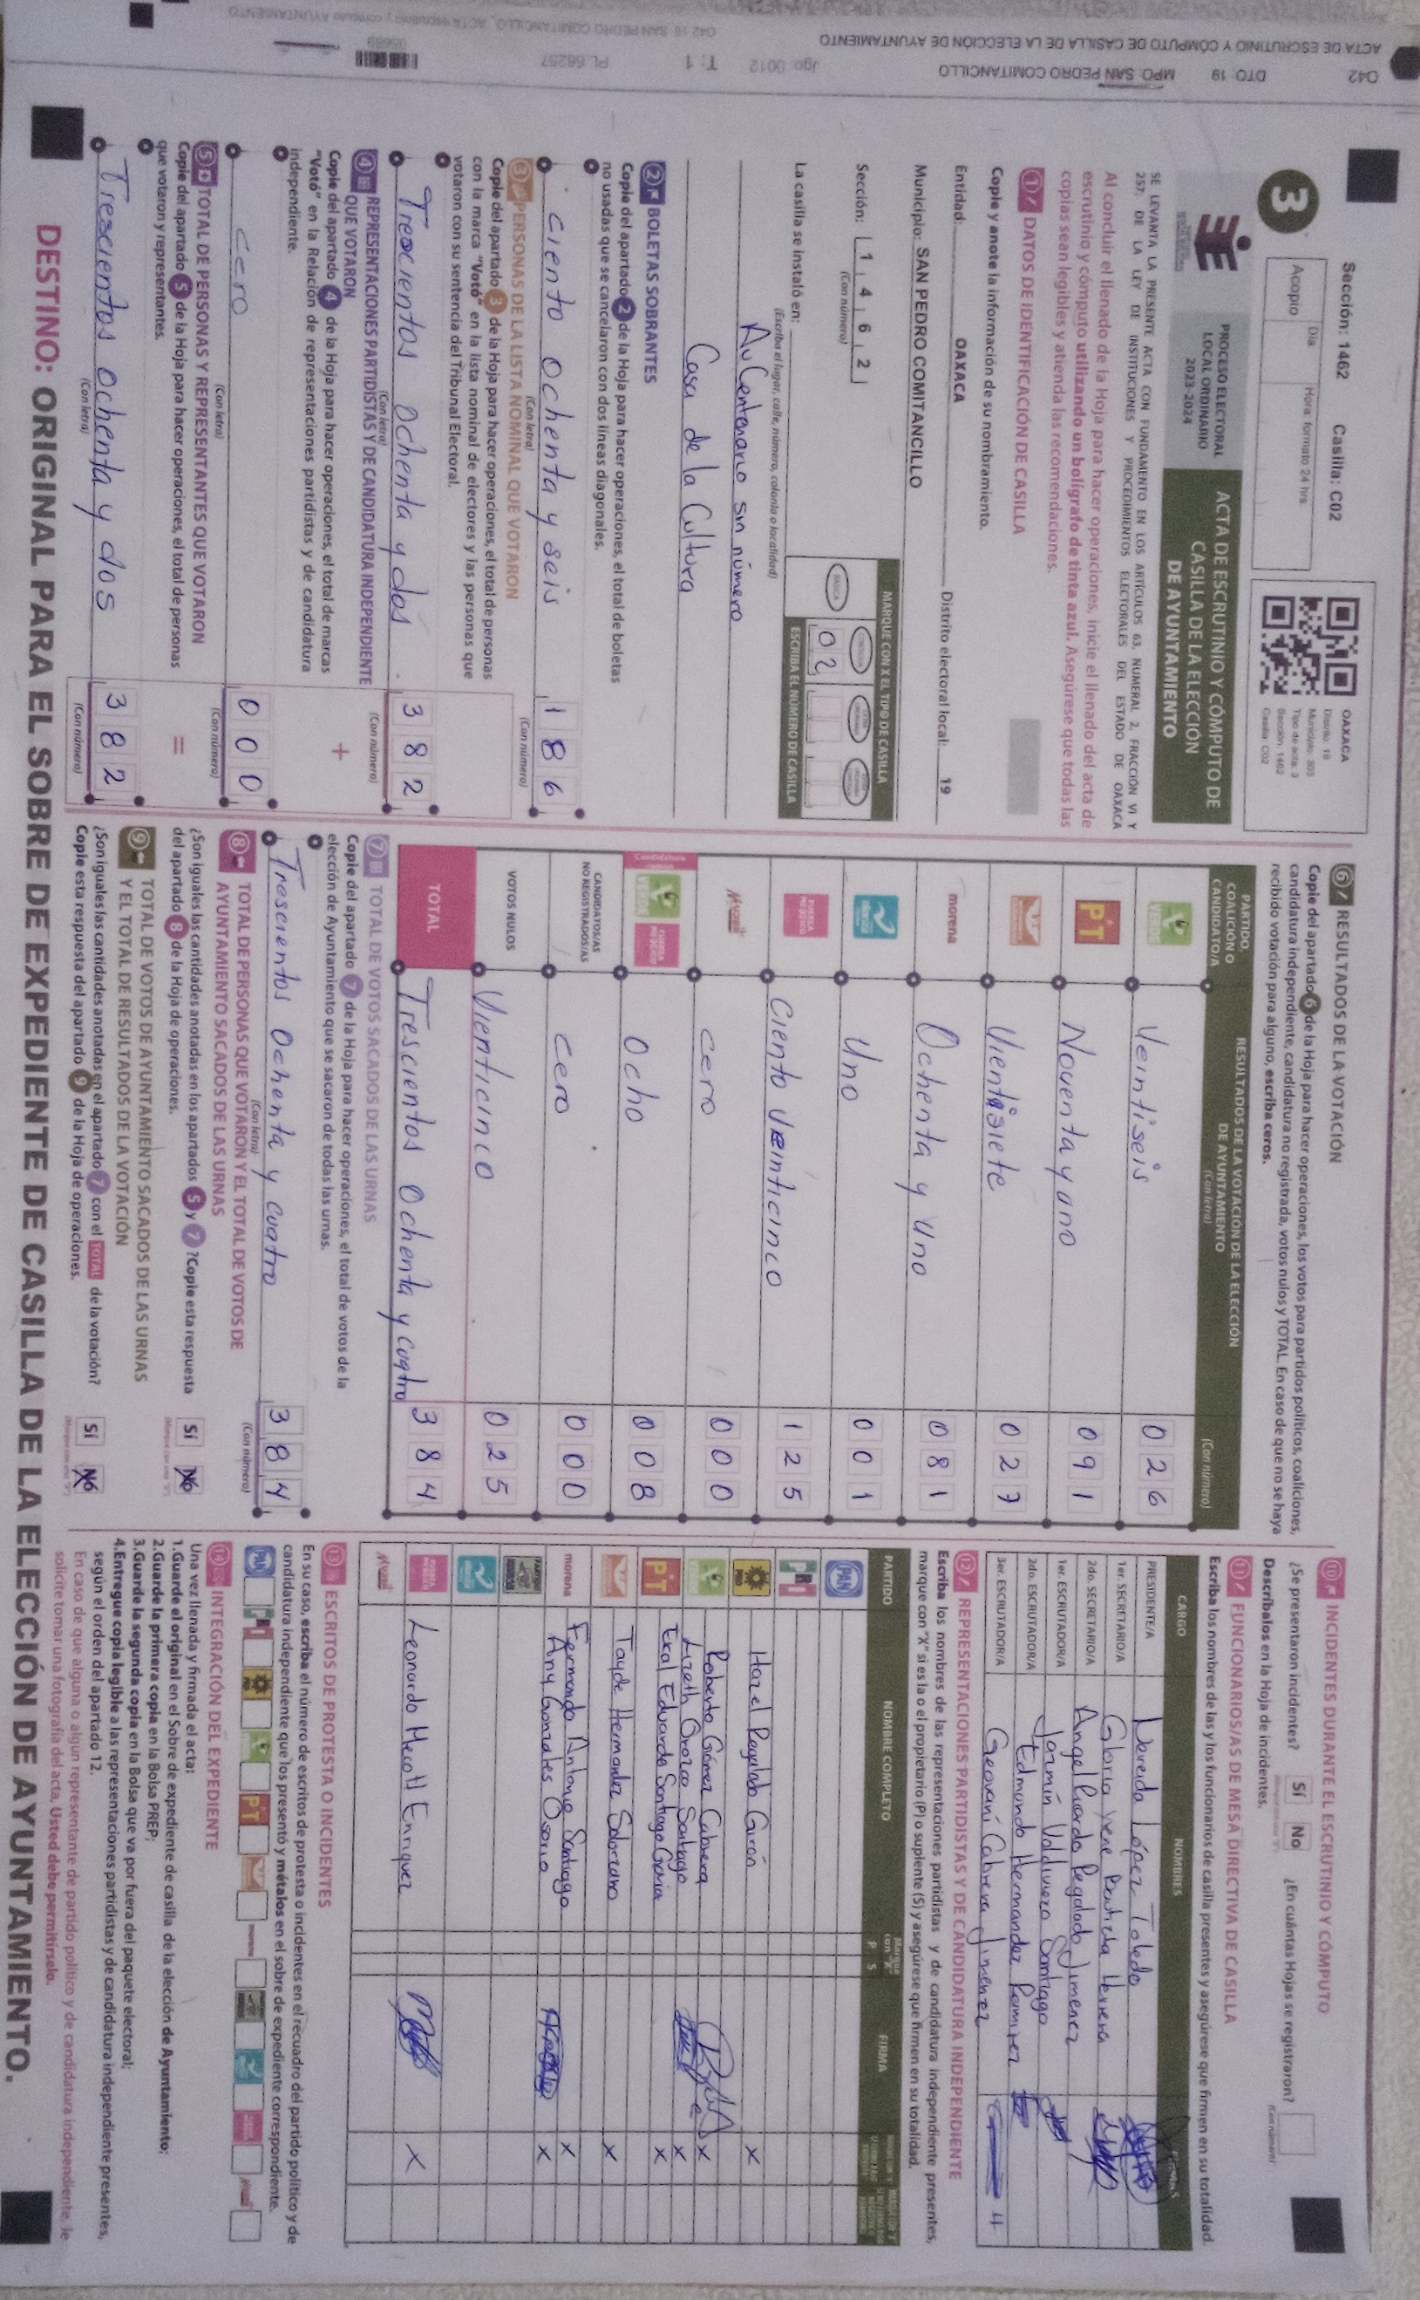 Sección: 1462 Casilla: C02
3
Acopio
Día
Hora: formato 24 hrs
PROCESO ELECTORAL
LOCAL ORDINARIO
2023-2024
ACTA DE ESCRUTINIO Y CÓMPUTO DE
CASILLA DE LA ELECCIÓN
DE AYUNTAMIENTO
OAXACA
Distrito: 19
Tipo de acta: 3
Sección: 1462
Casilla: C02
SE LEVANTA LA PRESENTE ACTA CON FUNDAMENTO EN LOS ARTÍCULOS 63, NUMERAL 2, FRACCIÓN VI Y
257; DE LA LEY DE INSTITUCIONES Y PROCEDIMIENTOS ELECTORALES DEL ESTADO DE OAXACA
Al concluir el llenado de la Hoja para hacer operaciones, inicie el llenado del acta de
escrutinio y cómputo utilizando un bolígrafo de tinta azul. Asegúrese que todas las
copias sean legibles y atienda las recomendaciones.
1 DATOS DE IDENTIFICACIÓN DE CASILLA
Copie y anote la información de su nombramiento.
Entidad: OAXACA Distrito electoral local: 19
Municipio: SAN PEDRO COMITANCILLO
Sección: 1 4 6 2
(Con número)
MARQUE CON X EL TIPO DE CASILLA
BÁSICA
02
ESCRIBA EL NÚMERO DE CASILLA
La casilla se instaló en:
(Escriba el lugar, calle, número, colonia o localidad)
Av Centenario sin número
Casa de la Cultura
2 BOLETAS SOBRANTES
Copie del apartado 2 de la Hoja para hacer operaciones, el total de boletas
no usadas que se cancelaron con dos líneas diagonales.
ciento ochenta y seis 1 8 6
(Con letra) (Con número)
3 PERSONAS DE LA LISTA NOMINAL QUE VOTARON
Copie del apartado 3 de la Hoja para hacer operaciones, el total de personas
con la marca "Votó" en la lista nominal de electores y las personas que
votaron con su sentencia del Tribunal Electoral.
Trescientos ochenta y dos. 3 8 2
(Con letra) (Con número)
4 REPRESENTACIONES PARTIDISTAS Y DE CANDIDATURA INDEPENDIENTE
QUE VOTARON
Copie del apartado 4 de la Hoja para hacer operaciones, el total de marcas
"Votó" en la Relación de representaciones partidistas y de candidatura
independiente.
+
cero 0 0 0
(Con letra) (Con número)
5 TOTAL DE PERSONAS Y REPRESENTANTES QUE VOTARON
Copie del apartado 5 de la Hoja para hacer operaciones, el total de personas
que votaron y representantes.
=
Trescientos ochenta y dos 3 8 2
(Con letra) (Con número)
6 RESULTADOS DE LA VOTACIÓN
Copie del apartado 6 de la Hoja para hacer operaciones, los votos para partidos políticos, coaliciones,
candidatura independiente, candidatura no registrada, votos nulos y TOTAL. En caso de que no se haya
recibido votación para alguno, escriba ceros.
PARTIDO,
COALICIÓN O
CANDIDATO/A
RESULTADOS DE LA VOTACIÓN DE LA ELECCIÓN
DE AYUNTAMIENTO
(Con letra)
(Con número)
VERDE Veintiseis 0 2 6
PT Noventa y uno 0 9 1
Vientisiete 0 2 7
morena Ochenta y uno 0 8 1
Uno 0 0 1
FUERZA MÉXICO Ciento Veinticinco 1 2 5
cero 0 0 0
VERDE FUERZA MÉXICO Ocho 0 0 8
CANDIDATOS/AS
NO REGISTRADOS/AS cero 0 0 0
VOTOS NULOS Vienticinco 0 2 5
TOTAL Trescientos ochenta y cuatro 3 8 4
7 TOTAL DE VOTOS SACADOS DE LAS URNAS
Copie del apartado 7 de la Hoja para hacer operaciones, el total de votos de la
elección de Ayuntamiento que se sacaron de todas las urnas.
Trescientos Ochenta y cuatro 3 8 4
(Con letra) (Con número)
8 TOTAL DE PERSONAS QUE VOTARON Y EL TOTAL DE VOTOS DE
AYUNTAMIENTO SACADOS DE LAS URNAS
¿Son iguales las cantidades anotadas en los apartados 5 y 7 ? Copie esta respuesta
del apartado 8 de la Hoja de operaciones.
Sí No
9 TOTAL DE VOTOS DE AYUNTAMIENTO SACADOS DE LAS URNAS
Y EL TOTAL DE RESULTADOS DE LA VOTACIÓN
¿Son iguales las cantidades anotadas en el apartado 7 con el TOTAL de la votación?
Copie esta respuesta del apartado 9 de la Hoja de operaciones.
Sí No
10 INCIDENTES DURANTE EL ESCRUTINIO Y CÓMPUTO
¿Se presentaron incidentes? Sí No ¿En cuántas Hojas se registraron?
(Con número)
Descríbalos en la Hoja de incidentes.
11 FUNCIONARIOS/AS DE MESA DIRECTIVA DE CASILLA
Escriba los nombres de las y los funcionarios de casilla presentes y asegúrese que firmen en su totalidad.
CARGO NOMBRES
PRESIDENTE/A Nereida López Toledo
1er. SECRETARIO/A Gloria Irene Bautista Herrera
2do. SECRETARIO/A Angel Ricardo Regalado Jimenez
1er. ESCRUTADOR/A Jazmín Valdivieso Santiago
2do. ESCRUTADOR/A Edmundo Hernandez Ramirez
3er. ESCRUTADOR/A Geovaní Cabrera Jimenez
12 REPRESENTACIONES PARTIDISTAS Y DE CANDIDATURA INDEPENDIENTE
Escriba los nombres de las representaciones partidistas y de candidatura independiente presentes,
marque con "X" si es la o el propietario (P) o suplente (S) y asegúrese que firmen en su totalidad.
PARTIDO NOMBRE COMPLETO P S FIRMA
PAN
PRI
PRD Hazel Regalado Girón X
VERDE Roberto Gómez Cabrera X
Lizeth Orozco Santiago X
PT Exal Eduardo Santiago Gracia X
Tayde Hernandez Solorzano X
morena Fernando Antonio Santiago X
Any Gonzales Osorio X
FUERZA MÉXICO Leonardo Mecott Enriquez X
13 ESCRITOS DE PROTESTA O INCIDENTES
En su caso, escriba el número de escritos de protesta o incidentes en el recuadro del partido político y de
candidatura independiente que los presentó y métalos en el sobre de expediente correspondiente.
PAN PRI PRD VERDE PT morena
14 INTEGRACIÓN DEL EXPEDIENTE
Una vez llenada y firmada el acta:
1.Guarde el original en el Sobre de expediente de casilla de la elección de Ayuntamiento;
2.Guarde la primera copia en la Bolsa PREP;
3.Guarde la segunda copia en la Bolsa que va por fuera del paquete electoral;
4.Entregue copia legible a las representaciones partidistas y de candidatura independiente presentes,
según el orden del apartado 12.
En caso de que alguna o algún representante de partido político y de candidatura independiente, le
solicite tomar una fotografía del acta, Usted debe permitírselo.
DESTINO: ORIGINAL PARA EL SOBRE DE EXPEDIENTE DE CASILLA DE LA ELECCIÓN DE AYUNTAMIENTO.
ACTA DE ESCRUTINIO Y CÓMPUTO DE CASILLA DE LA ELECCIÓN DE AYUNTAMIENTO
042 DTO: 19 MPO: SAN PEDRO COMITANCILLO Jgo: 0012 T: 1 PL:66257